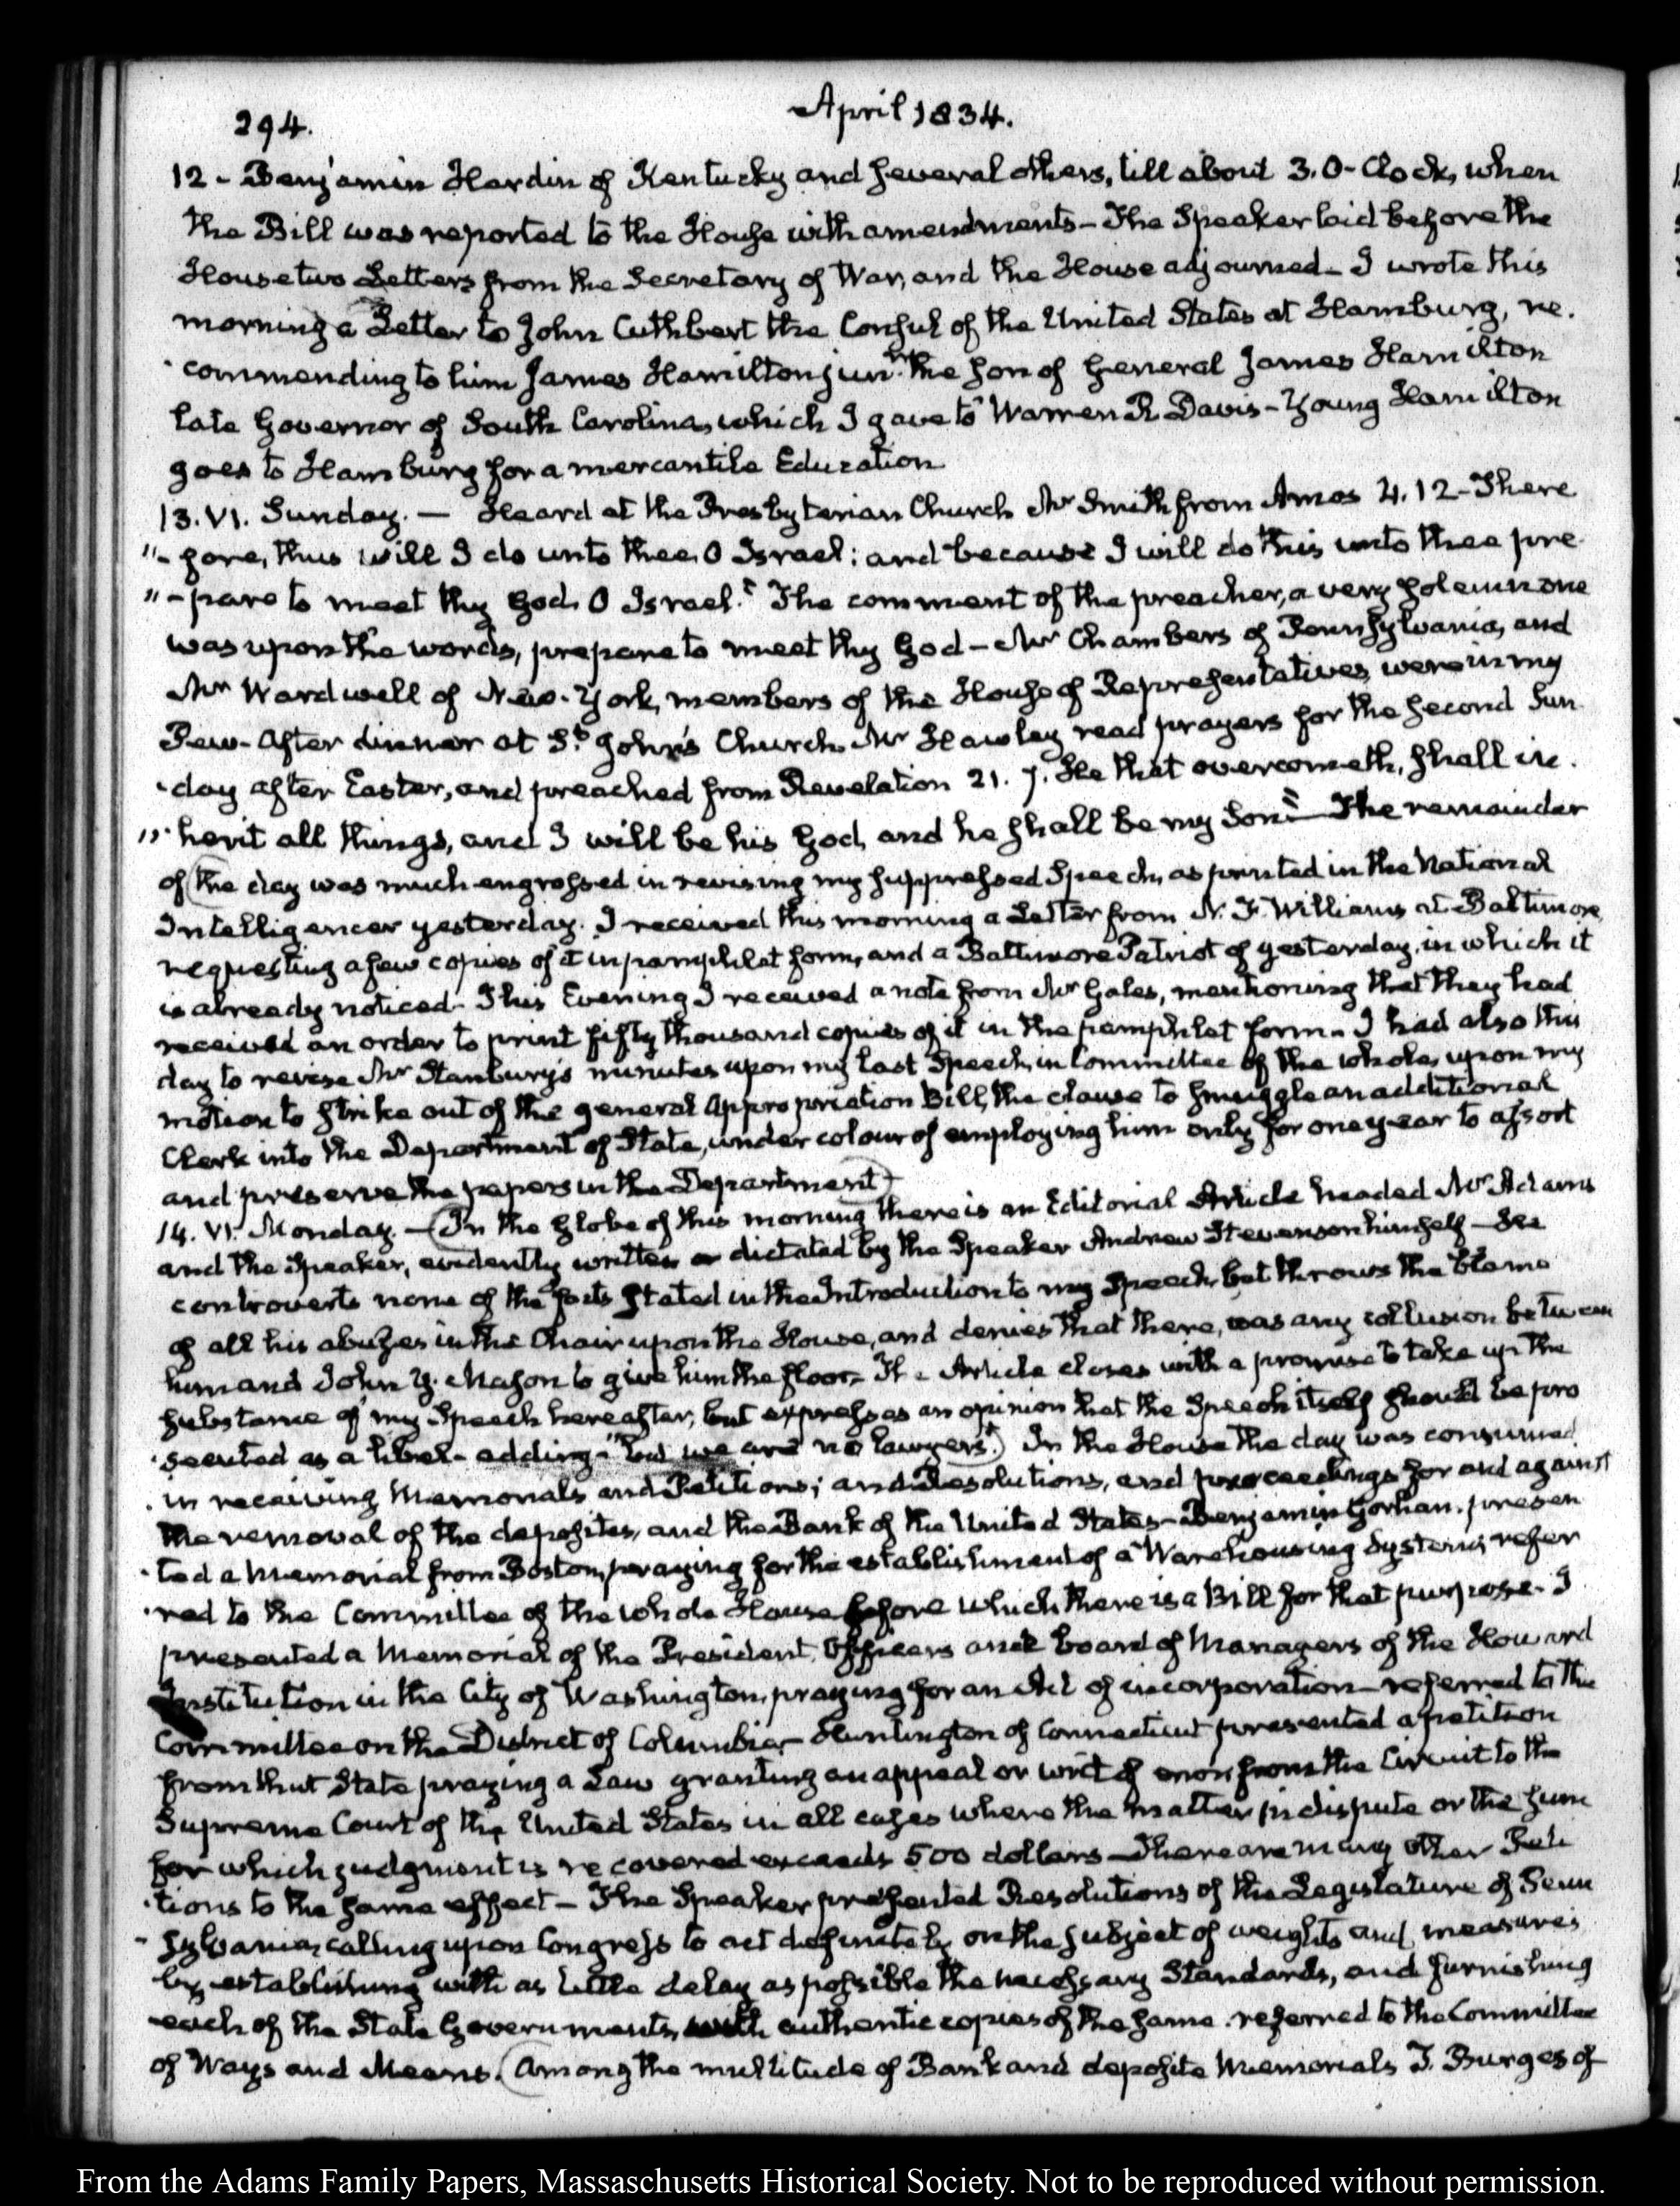 294.
April 1834.
12 - Benjamin Hardin of Kentucky and several others, till about 3. O-Clock, when
the Bill was reported to the House with amendments - The Speaker laid before the
House two Letters from the Secretary of War, and the House adjourned - I wrote this
morning a Letter to John Cuthbert the Consul of the United States at Hamburg, re-
commending to him James Hamilton junr. the son of General James Hamilton
late Governor of South Carolina, which I gave to Warren R Davis - Young Hamilton
goes to Hamburg for a mercantile Education
13. VI. Sunday. — Heard at the Presbyterian Church Mr Smith from Amos 4. 12 - There
"- fore, thus will I do unto thee, O Israel; and because I will do this unto thee pre-
"- pare to meet thy God, O Israel." The comment of the preacher, a very solemn one
was upon the words, prepare to meet thy God - Mr Chambers of Pennsylvania, and
Mr Wardwell of New-York, members of the House of Representatives, were in my
Pew - After dinner at St. John's Church, Mr Hawley read prayers for the second Sun-
-day after Easter, and preached from Revelation 21. 7. He that overcometh, shall in-
"-herit all things, and I will be his God, and he shall be my Son" - The remainder
of (the day was much engrossed in revising my suppressed Speech, as printed in the National
Intelligencer yesterday. I received this morning a Letter from N. F. Williams at Baltimore
requesting a few copies of it in pamphlet form, and a Baltimore Patriot of yesterday, in which it
is already noticed - This Evening I received a note from Mr Gales, mentioning that they had
received an order to print fifty thousand copies of it in the pamphlet form - I had also this
day to revise Mr Stanbury's minutes upon my last Speech, in Committee of the whole, upon my
motion to strike out of the general Appropriation Bill, the clause to smuggle an additional
Clerk into the Department of State, under colour of employing him only for one year to assort
and preserve the papers in the Department)
14. VI. Monday. - (In the Globe of this morning there is an Editorial Article headed Mr Adams
and the Speaker, evidently written or dictated by the Speaker Andrew Stevenson himself - He
controverts none of the facts stated in the Introduction to my Speech, but throws the blame
of all his abuses in the Chair upon the House, and denies that there, was any collusion between
him and John Y. Mason to give him the floor - The Article closes with a promise to take up the
substance of my Speech hereafter, but expresses an opinion that the Speech itself should be pro
-secuted as a libel - adding - "but we are no lawyers".) In the House the day was consumed
in receiving Memorials and Petitions; and Resolutions, and proceedings for and against
the removal of the deposites, and the Bank of the United States - Benjamin Gorham, presen
-ted a Memorial from Boston, praying for the establishment of a Warehousing System; refer
-red to the Committee of the whole House before which there is a Bill for that purpose - I
presented a Memorial of the President, Officers and board of Managers of the Howard
Institution in the City of Washington, praying for an Act of incorporation - referred to the
Committee on the District of Columbia - Huntington of Connecticut presented a petition
from that State praying a Law granting an appeal or writ of error from the Circuit to the
Supreme Court of the United States in all cases where the matter in dispute or the sum
for which judgment is recovered exceeds 500 dollars - There are many other Peti
-tions to the same effect - The Speaker presented Resolutions of the Legislature of Penn
-sylvania, calling upon Congress to act definitely on the subject of weights and measures
by establishing with as little delay as possible the necessary Standards, and furnishing
each of the State Governments, with authentic copies of the same. referred to the Committee
of Ways and Means. (Among the multitude of Bank and deposite Memorials T. Burges of
From the Adams Family Papers, Massachusetts Historical Society. Not to be reproduced without permission.